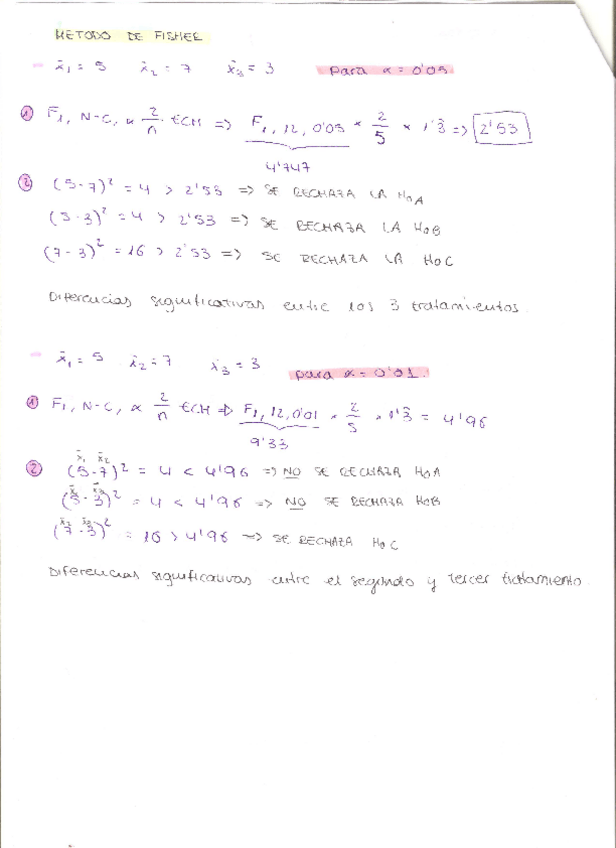 METODO DE FISHER
- x̄₁ = 5 x̄₂ = 7 x̄₃ = 3 para α = 0'05
① F₁, N-C, α 2/n · ECM => F₁, 12, 0'05 * 2/5 * 1'3̂ => 2'53
4'747
② (5-7)² = 4 > 2'53 => SE RECHAZA LA H₀A
(5-3)² = 4 > 2'53 => SE RECHAZA LA H₀B
(7-3)² = 16 > 2'53 => SE RECHAZA LA H₀C
Diferencias significativas entre los 3 tratamientos.
- x̄₁ = 5 x̄₂ = 7 x̄₃ = 3 para α = 0'01.
① F₁, N-C, α 2/n ECM => F₁, 12, 0'01 * 2/5 * 1'3̂ = 4'96
9'33
x̄₁ x̄₂
② (5-7)² = 4 < 4'96 => NO SE RECHAZA H₀A
x̄₁ x̄₃
(5-3)² = 4 < 4'96 => NO SE RECHAZA H₀B
x̄₂ x̄₃
(7-3)² = 16 > 4'96 => SE RECHAZA H₀C
Diferencias significativas entre el segundo y tercer tratamiento.